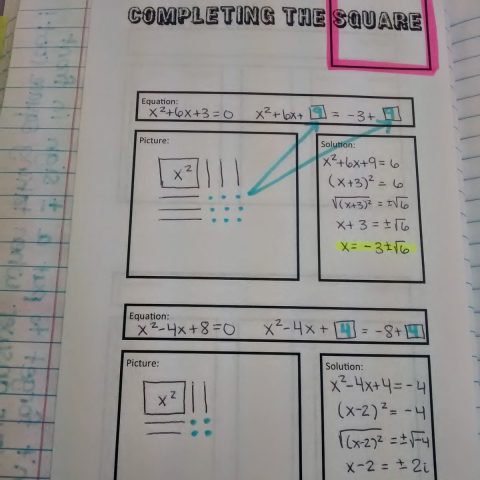 COMPLETING THE SQUARE
Equation:
x²+6x+3=0 x²+6x+ 9 = -3+ 9
Picture:
x²
Solution:
x²+6x+9=6
(x+3)² = 6
√(x+3)² = ±√6
x+3 = ±√6
x = -3±√6
Equation:
x²-4x+8=0 x²-4x + 4 = -8+ 4
Picture:
x²
Solution:
x²-4x+4=-4
(x-2)² = -4
√(x-2)² = ±√-4
x-2 = ± 2i